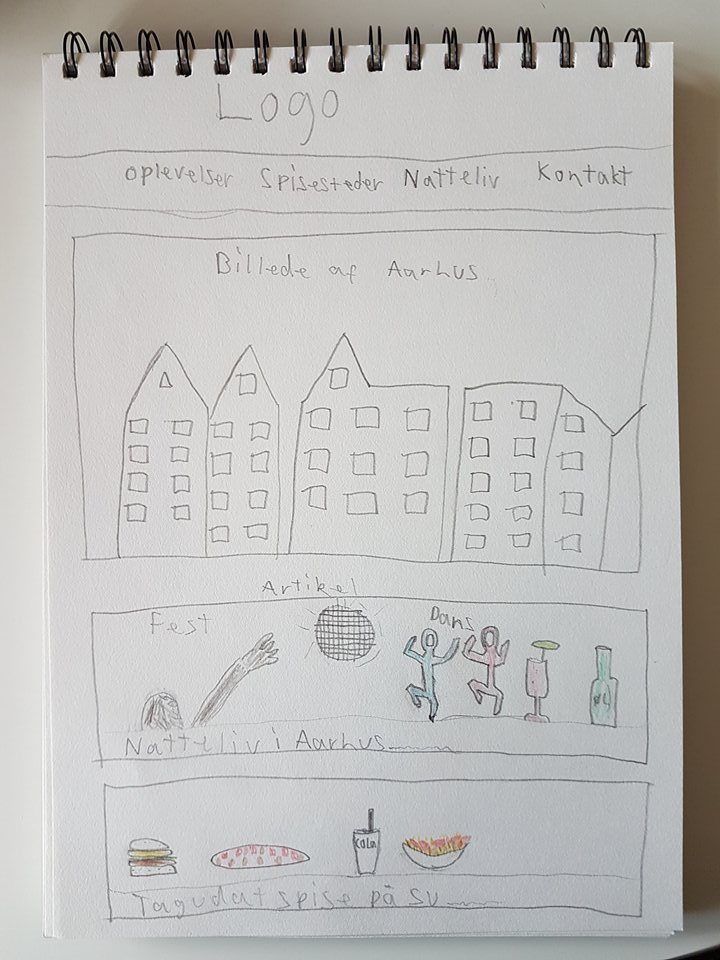 Logo
oplevelser Spisesteder Natteliv Kontakt
Billede af Aarhus
Artikel
Fest
Dans
Natteliv i Aarhus
Cola
Tag ud at spise på SU